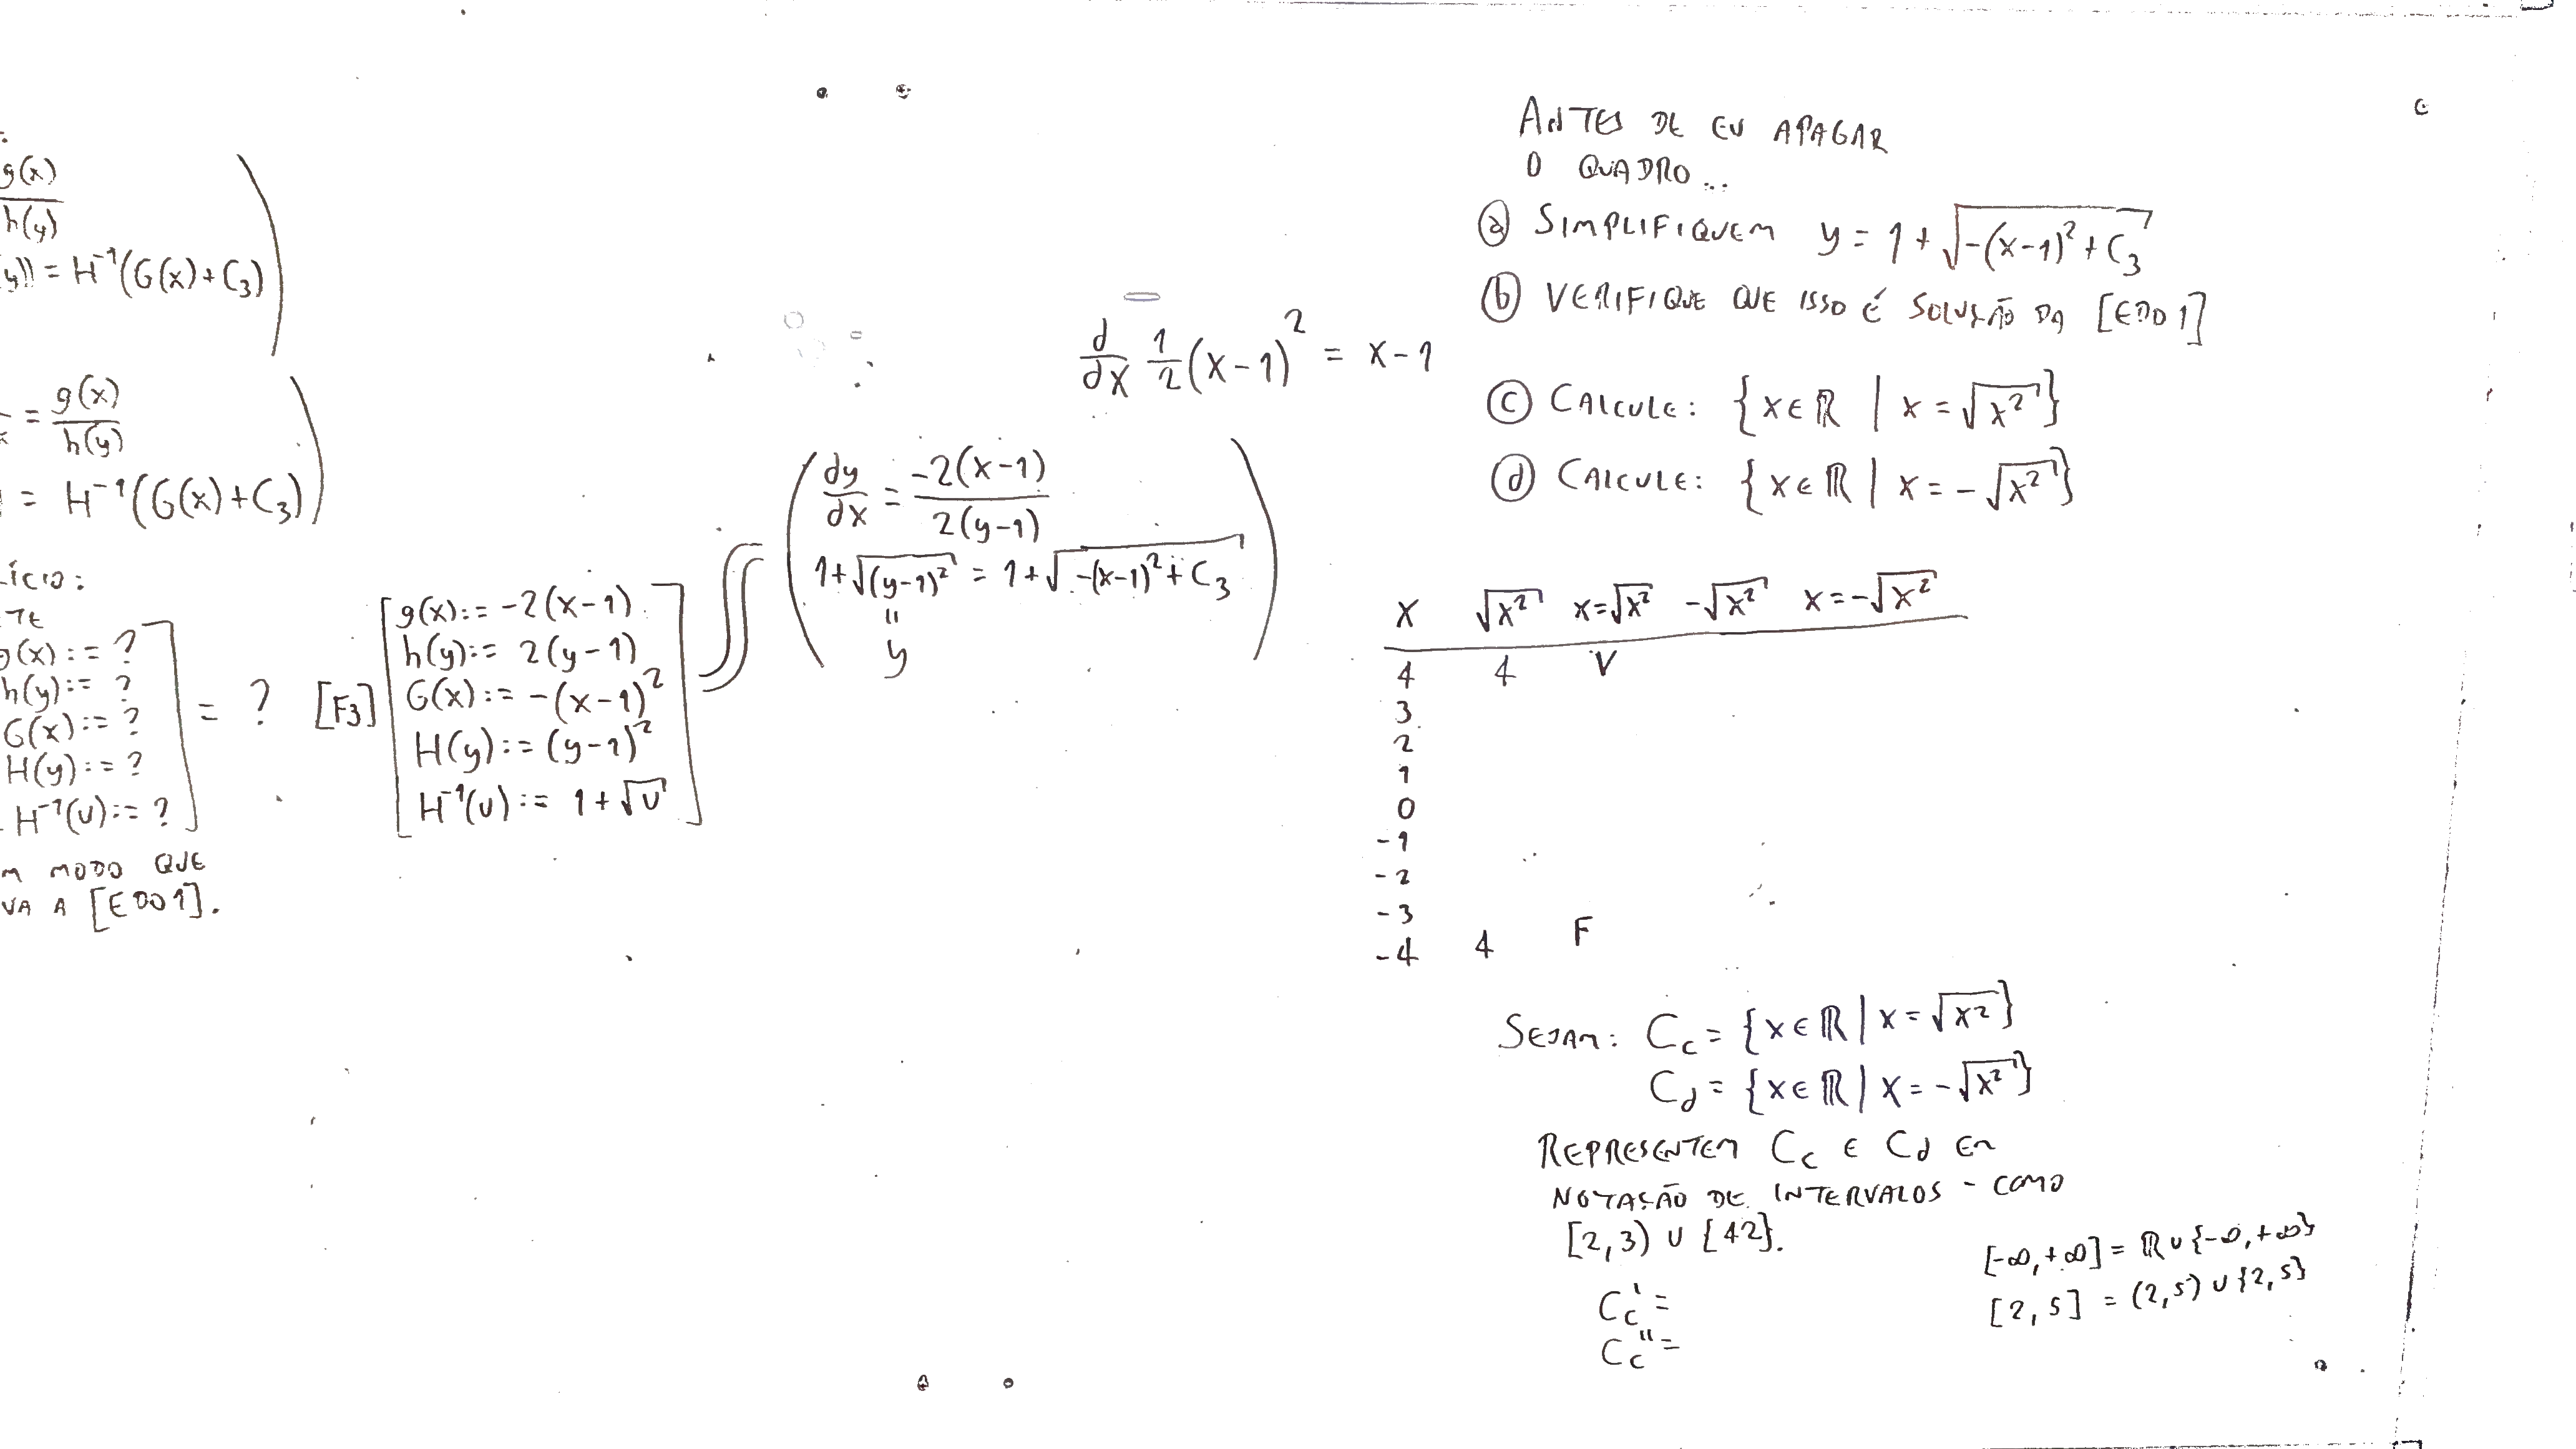 g(x)
h(y)
y)) = H⁻¹(G(x)+C₃)
= g(x)
h(y)
= H⁻¹(G(x)+C₃)
ÍCIO:
TE
g(x) := ?
h(y) := ?
G(x) := ?
H(y) := ?
H⁻¹(u) := ?
= ?
M MODO QUE
VA A [EDO1].
[F3]
g(x) := -2(x-1)
h(y) := 2(y-1)
G(x) := -(x-1)²
H(y) := (y-1)²
H⁻¹(u) := 1+√u
dy/dx = -2(x-1)/2(y-1)
1+√(y-1)² = 1+√-(x-1)²+C₃
"
y
d/dx 1/2 (x-1)² = x-1
ANTES DE EU APAGAR
O QUADRO...
ⓐ SIMPLIFIQUEM y = 1+√-(x-1)²+C₃
ⓑ VERIFIQUE QUE ISSO É SOLUÇÃO DA [EDO1]
ⓒ CALCULE: {x∈ℝ | x=√x²}
ⓓ CALCULE: {x∈ℝ | x=-√x²}
x √x² x=√x² -√x² x=-√x²
4 4 V
3
2
1
0
-1
-2
-3
-4 4 F
SEJAM: C_c = {x∈ℝ | x=√x²}
C_d = {x∈ℝ | x=-√x²}
REPRESENTEM C_c E C_d EM
NOTAÇÃO DE INTERVALOS - COMO
[2,3) ∪ {42}.
C_c' =
C_c'' =
[-∞,+∞] = ℝ∪{-∞,+∞}
[2,5] = (2,5)∪{2,5}